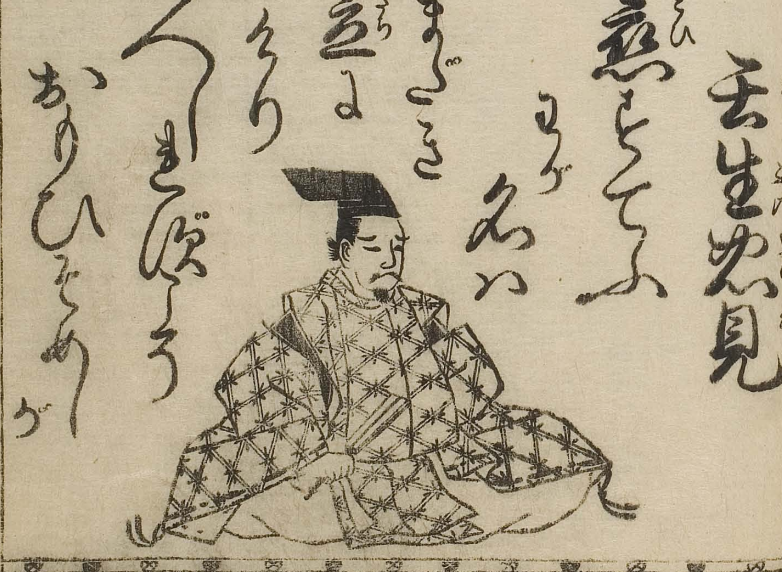 壬生忠見
恋すてふ
わが
名ハ
まだき
立に
けり
人しれずこそ
おもひそめしが